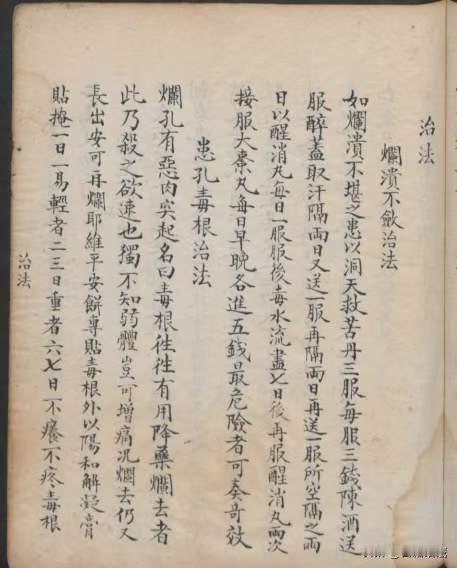 治法
爛潰不斂治法
如爛潰不堪之患以洞天救苦丹三服每服三錢陳酒送
服醉蓋取汗隔兩日又送一服再隔兩日再送一服所空隔之兩
日以醒消丸每日一服服後毒水流盡七日後再服醒消丸兩次
接服大棗丸每日早晚各進五錢最危險者可奏奇效
患孔毒根治法
爛孔有惡肉突起名曰毒根徃徃有用降藥爛去者
此乃殺之欲速也獨不知弱體豈可增痛况爛去仍又
長出安可再爛耶維平安餅專貼毒根外以陽和解凝膏
貼掩一日一易輕者二三日重者六七日不癢不疼毒根
治法